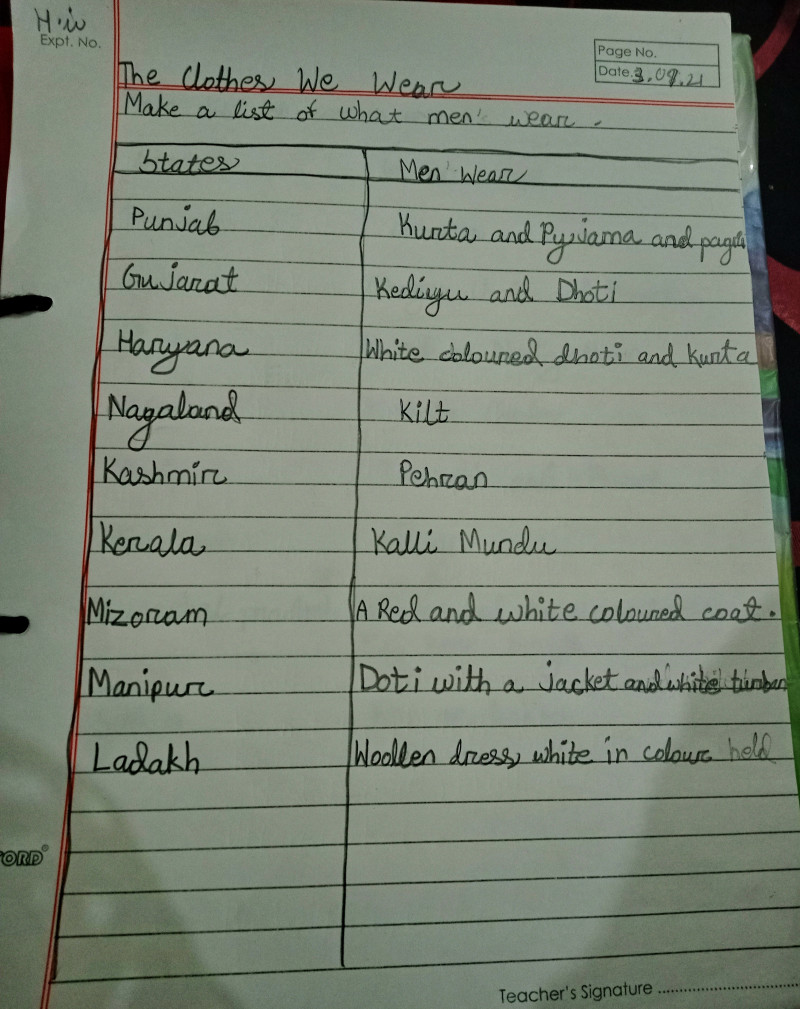 H.W
Expt. No.
Page No.
Date. 3.09.21
The Clothes We Wear
Make a list of what men' wear.
States Men' Wear
Punjab Kurta and Pyjama and pagdi
Gujarat Kediyu and Dhoti
Haryana White coloured dhoti and Kurta
Nagaland Kilt
Kashmir Pehran
Kerala Kalli Mundu
Mizoram A Red and white coloured coat.
Manipur Doti with a jacket and white turban
Ladakh Woollen dress, white in colour held
ORD®
Teacher's Signature